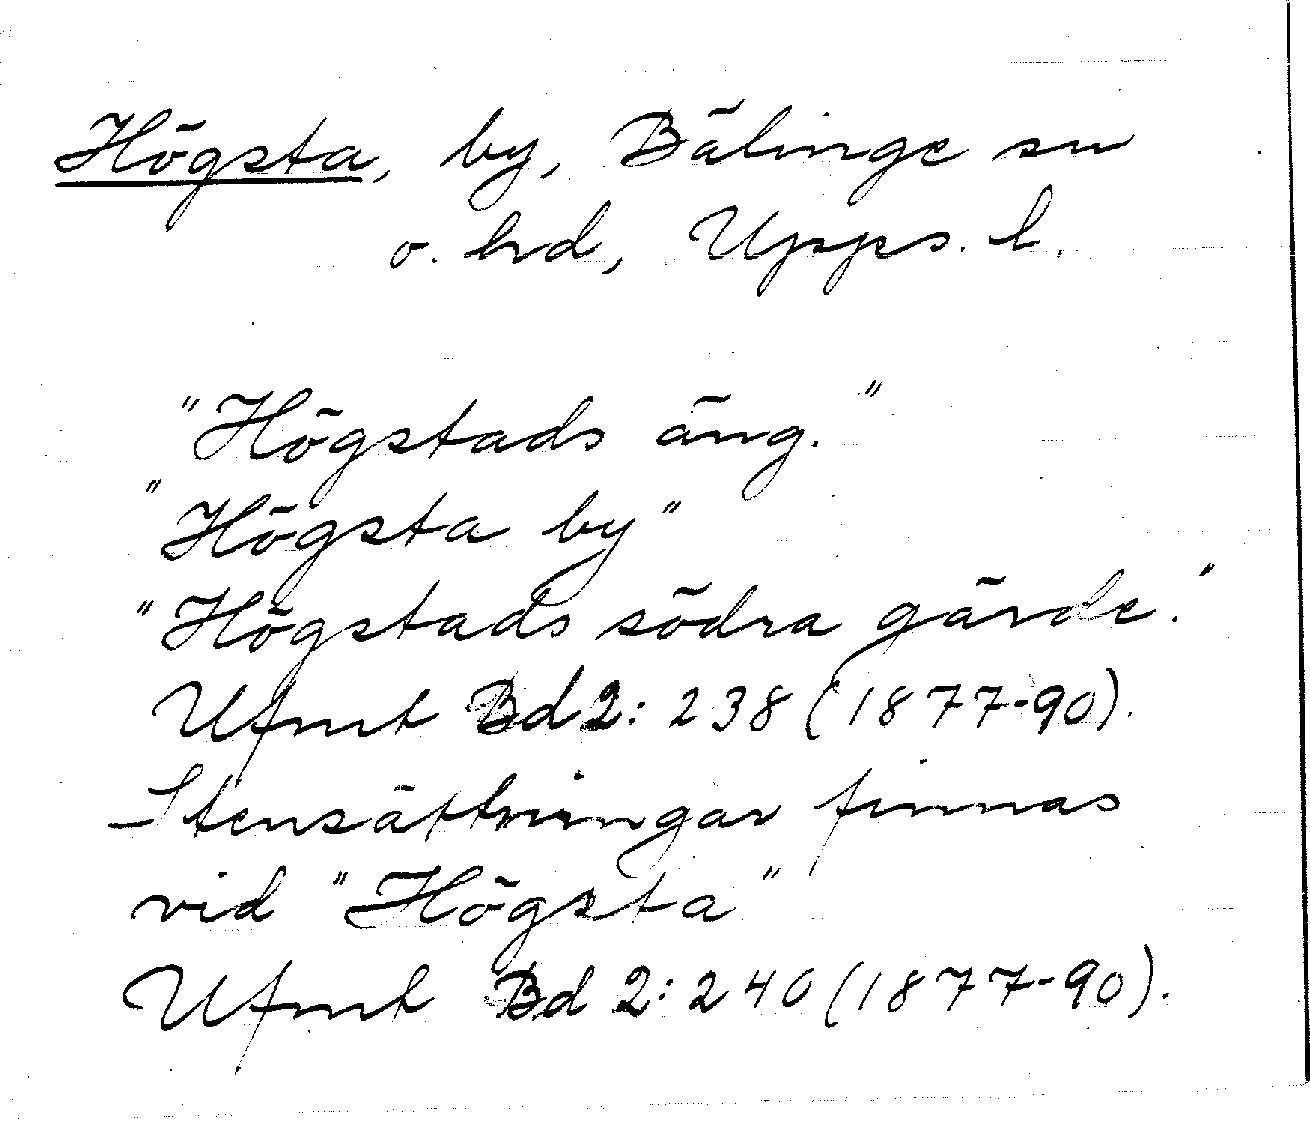 Högsta, by, Bälinge sn
o. hd, Upps. l.
"Högstads äng."
"Högsta by"
"Högstads södra gärde."
Ufmt Bd 2: 238 (1877-90).
Stensättningar finnas
vid "Högsta"
Ufmt Bd 2: 240 (1877-90).